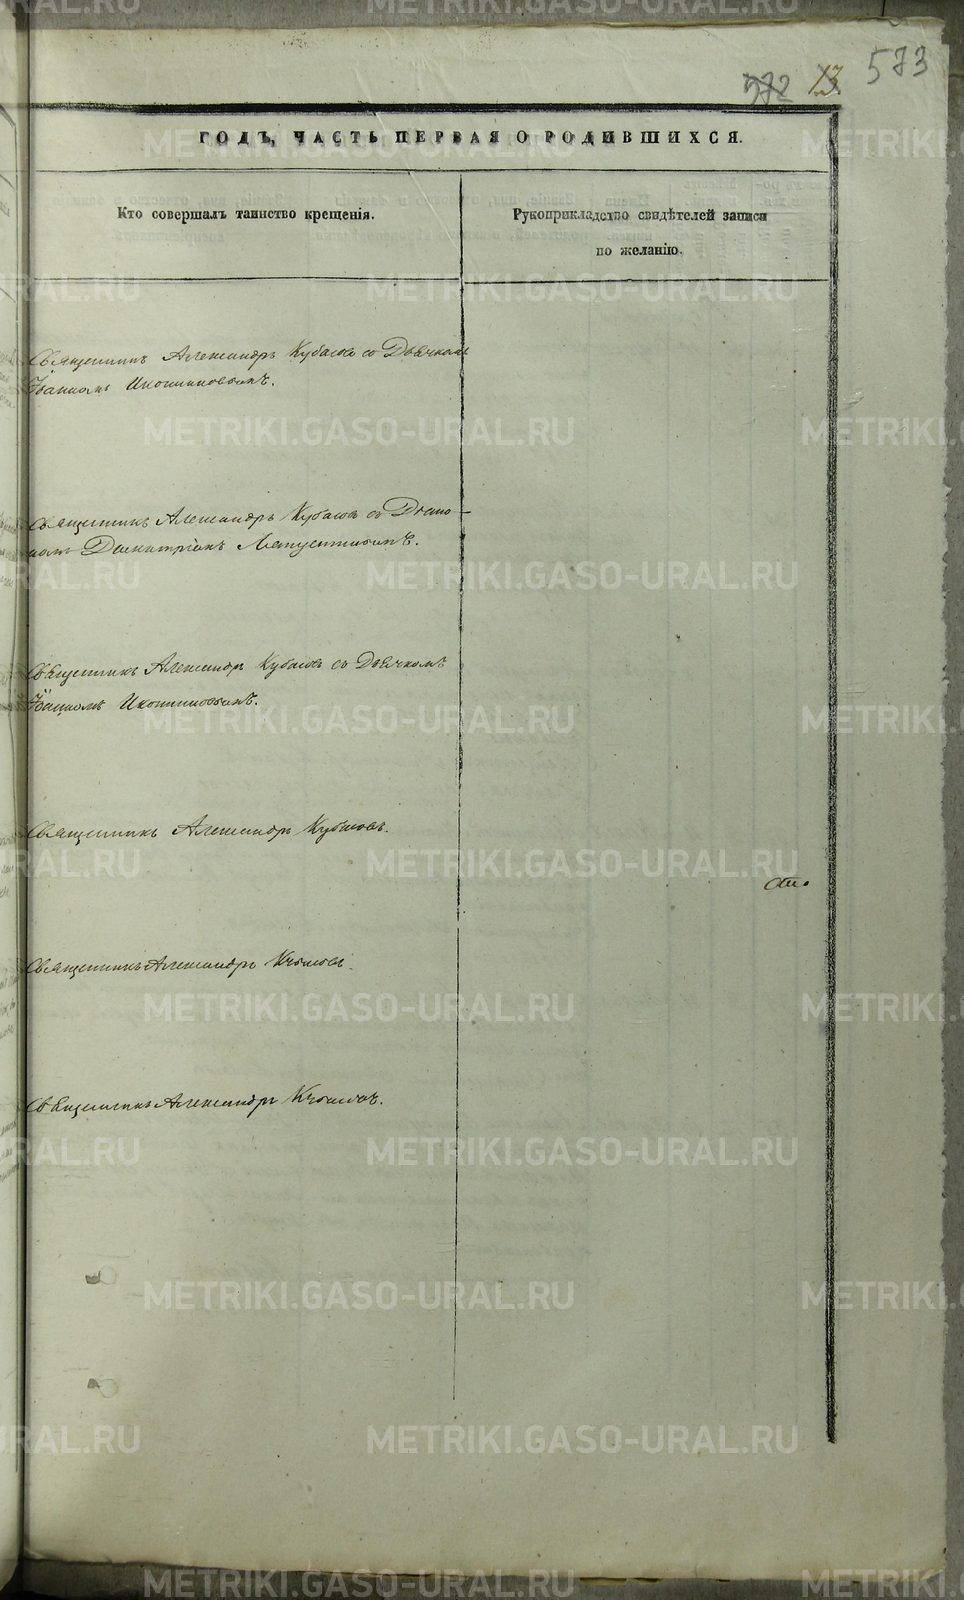 572 13. 573
ГОДЪ, ЧАСТЬ ПЕРВАЯ О РОДИВШИХСЯ.
Кто совершалъ таинство крещенія.
Рукоприкладство свидѣтелей записи
по желанію.
Священникъ Александръ Кубасовъ со Дьячкомъ
Иваномъ Иконниковымъ.
Священникъ Александръ Кубасовъ съ Діако-
номъ Димитріемъ
Священникъ Александръ Кубасовъ съ Дьячкомъ
Иваномъ Иконниковымъ.
Священникъ Александръ Кубасовъ.
Священникъ Александръ Кубасовъ.
Священникъ Александръ Кубасовъ.
METRIKI.GASO-URAL.RU